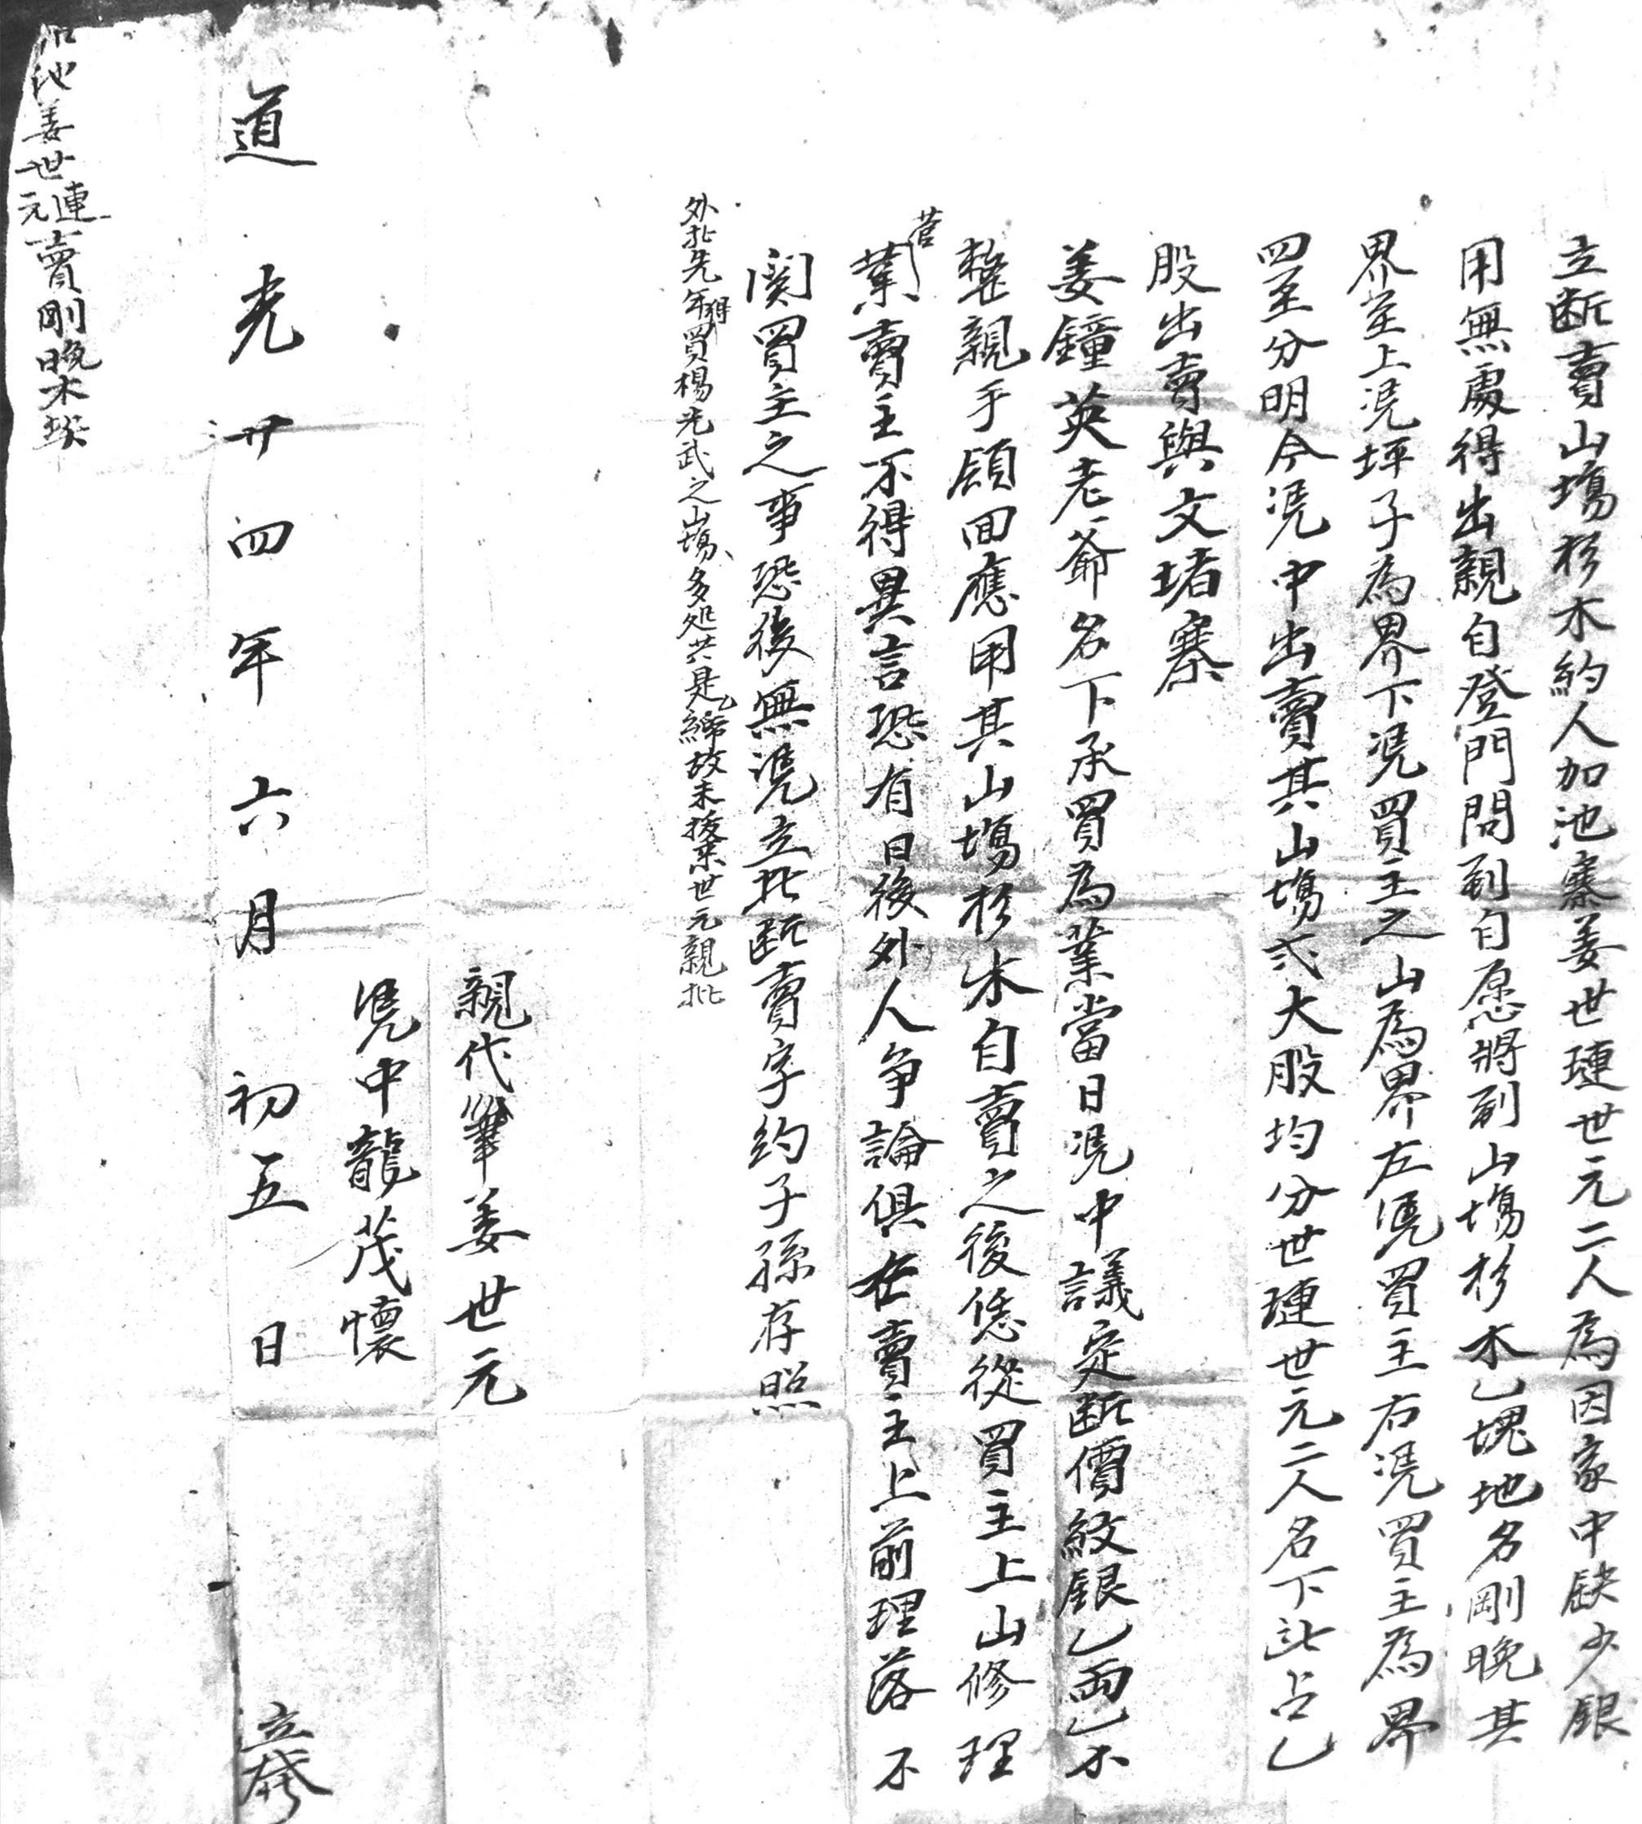 立断賣山塲杉木約人加池寨姜世璉世元二人為因家中缺少銀
用無處得出親自登門問到自愿將到山塲杉木乙塊地名剛晚其
界至上凴坪子為界下凴買主之山為界左凴買主右凴買主為界
四至分明今凴中出賣其山塲弍大股均分世璉世元二人名下此占乙
股出賣與文堵寨
姜鐘英老爺名下承買為業當日凴中議定断價紋銀乙両乙
整親手領回應用其山塲杉木自賣之後恁從買主上山修理
管業賣主不得異言恐有日後外人争論俱在賣主上前理落不
関買主之事恐後無凴立此断賣字約子孫存照
外批先年得買楊光武之山塲多処共是乙紙故未接来世元親批
親代筆姜世元
凴中龍茂懷
道光廿四年六月初五日立發
池姜世連元賣剛晚木契